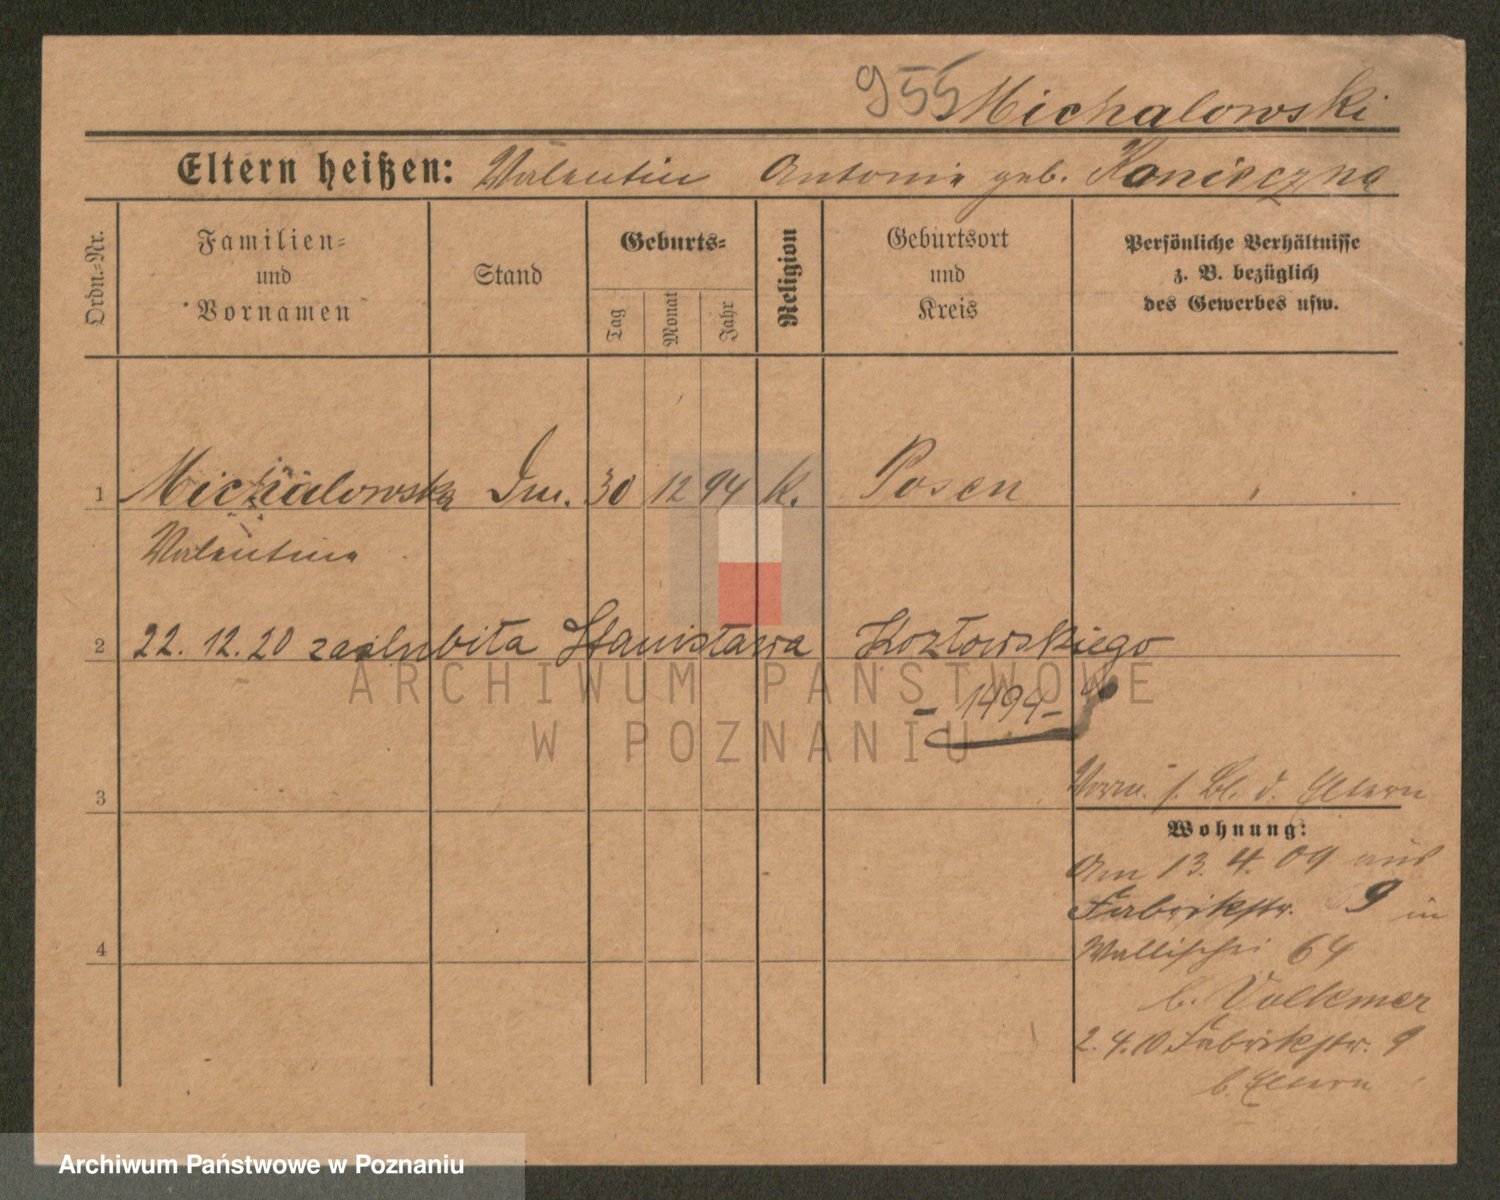 955 Michalowski
Eltern heißen: Valentin Antonie geb. Konieczna
Ordn.-Nr.
Familien-
und
Vornamen
Stand
Geburts-
Tag
Monat
Jahr
Religion
Geburtsort
und
Kreis
Persönliche Verhältnisse
z. B. bezüglich
des Gewerbes usw.
1 Michalowska 30 12 94 k. Posen
Valentine
2 22. 12. 20 zaślubiła Stanisława Kozłowskiego
- 1494 -
ARCHIWUM PAŃSTWOWE
W POZNANIU
3
Vorm. s. Bl. d. Eltern
Wohnung:
Am 13. 4. 09 aus
Fabrikstr. 9 in
4 Wallischei 64
b. Volkmer
2. 4. 10 Fabrikstr. 9
b. Eltern
Archiwum Państwowe w Poznaniu